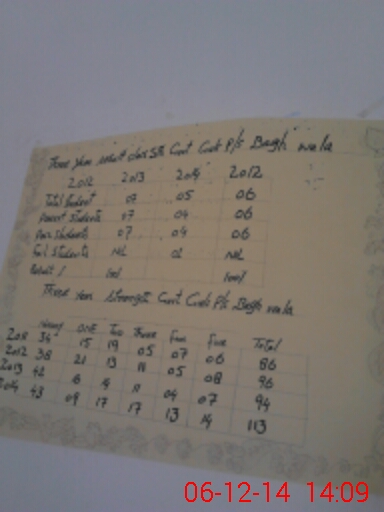 Three year result class 5th Govt Girls P/s Bagh wala
2012 2013 2014 2012
Total student 07 05 06
present students 07 04 06
pass students 07 04 06
Fail students NIL 01 NIL
Result % 100%
Three year strength Govt Girls P/s Bagh wala
ONE Two Three Four Five Total
2011 34 15 19 05 07 06 86
2012 38 21 13 11 05 08 96
2013 42 04 07 94
2014 43 09 17 17 13 14 113
06-12-14 14:09